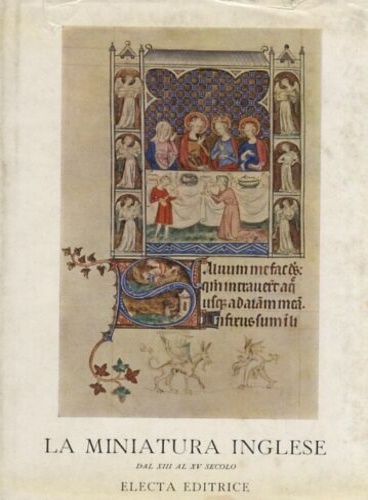 Saluum me fac ds̄:
qm̄ intrauer̄t aq̄
usq; ad aīam meā.
Infixus sum ī li
LA MINIATURA INGLESE
DAL XIII AL XV SECOLO
ELECTA EDITRICE